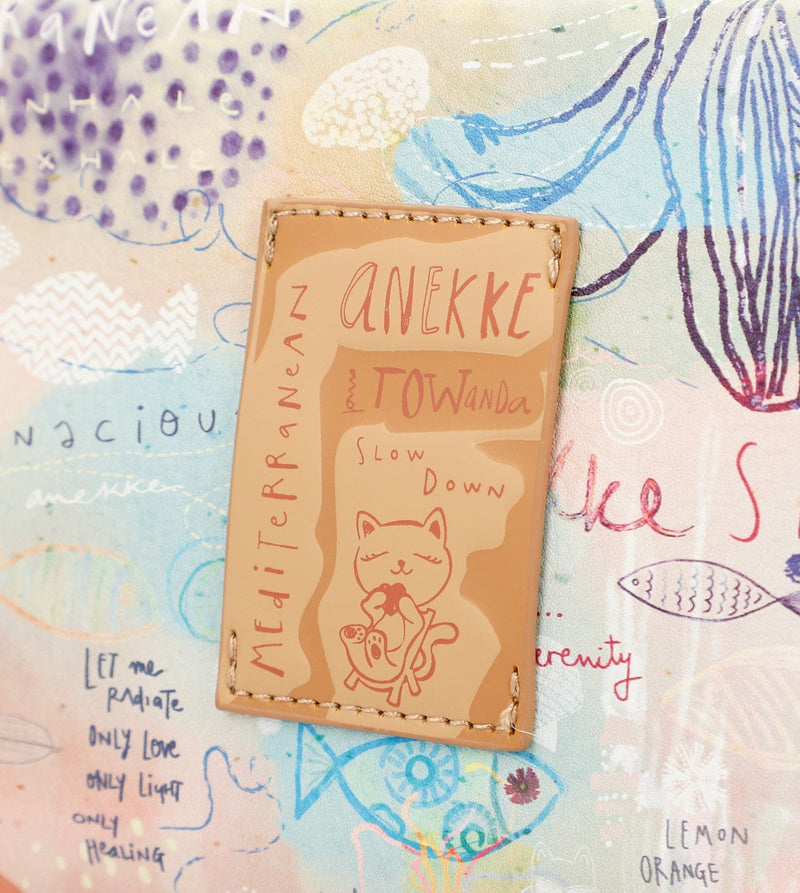 RaNeaN
INHALE
EXHALE
ANEKKE
MEdiTeRRaNeaN
TOWanda
SLOW
DOWN
Naciou
anekke
lke S
...
erenity
LET me
RADiate
ONLY Love
ONLY LIGHT
ONLY
HeaLING
LEMON
ORANGE